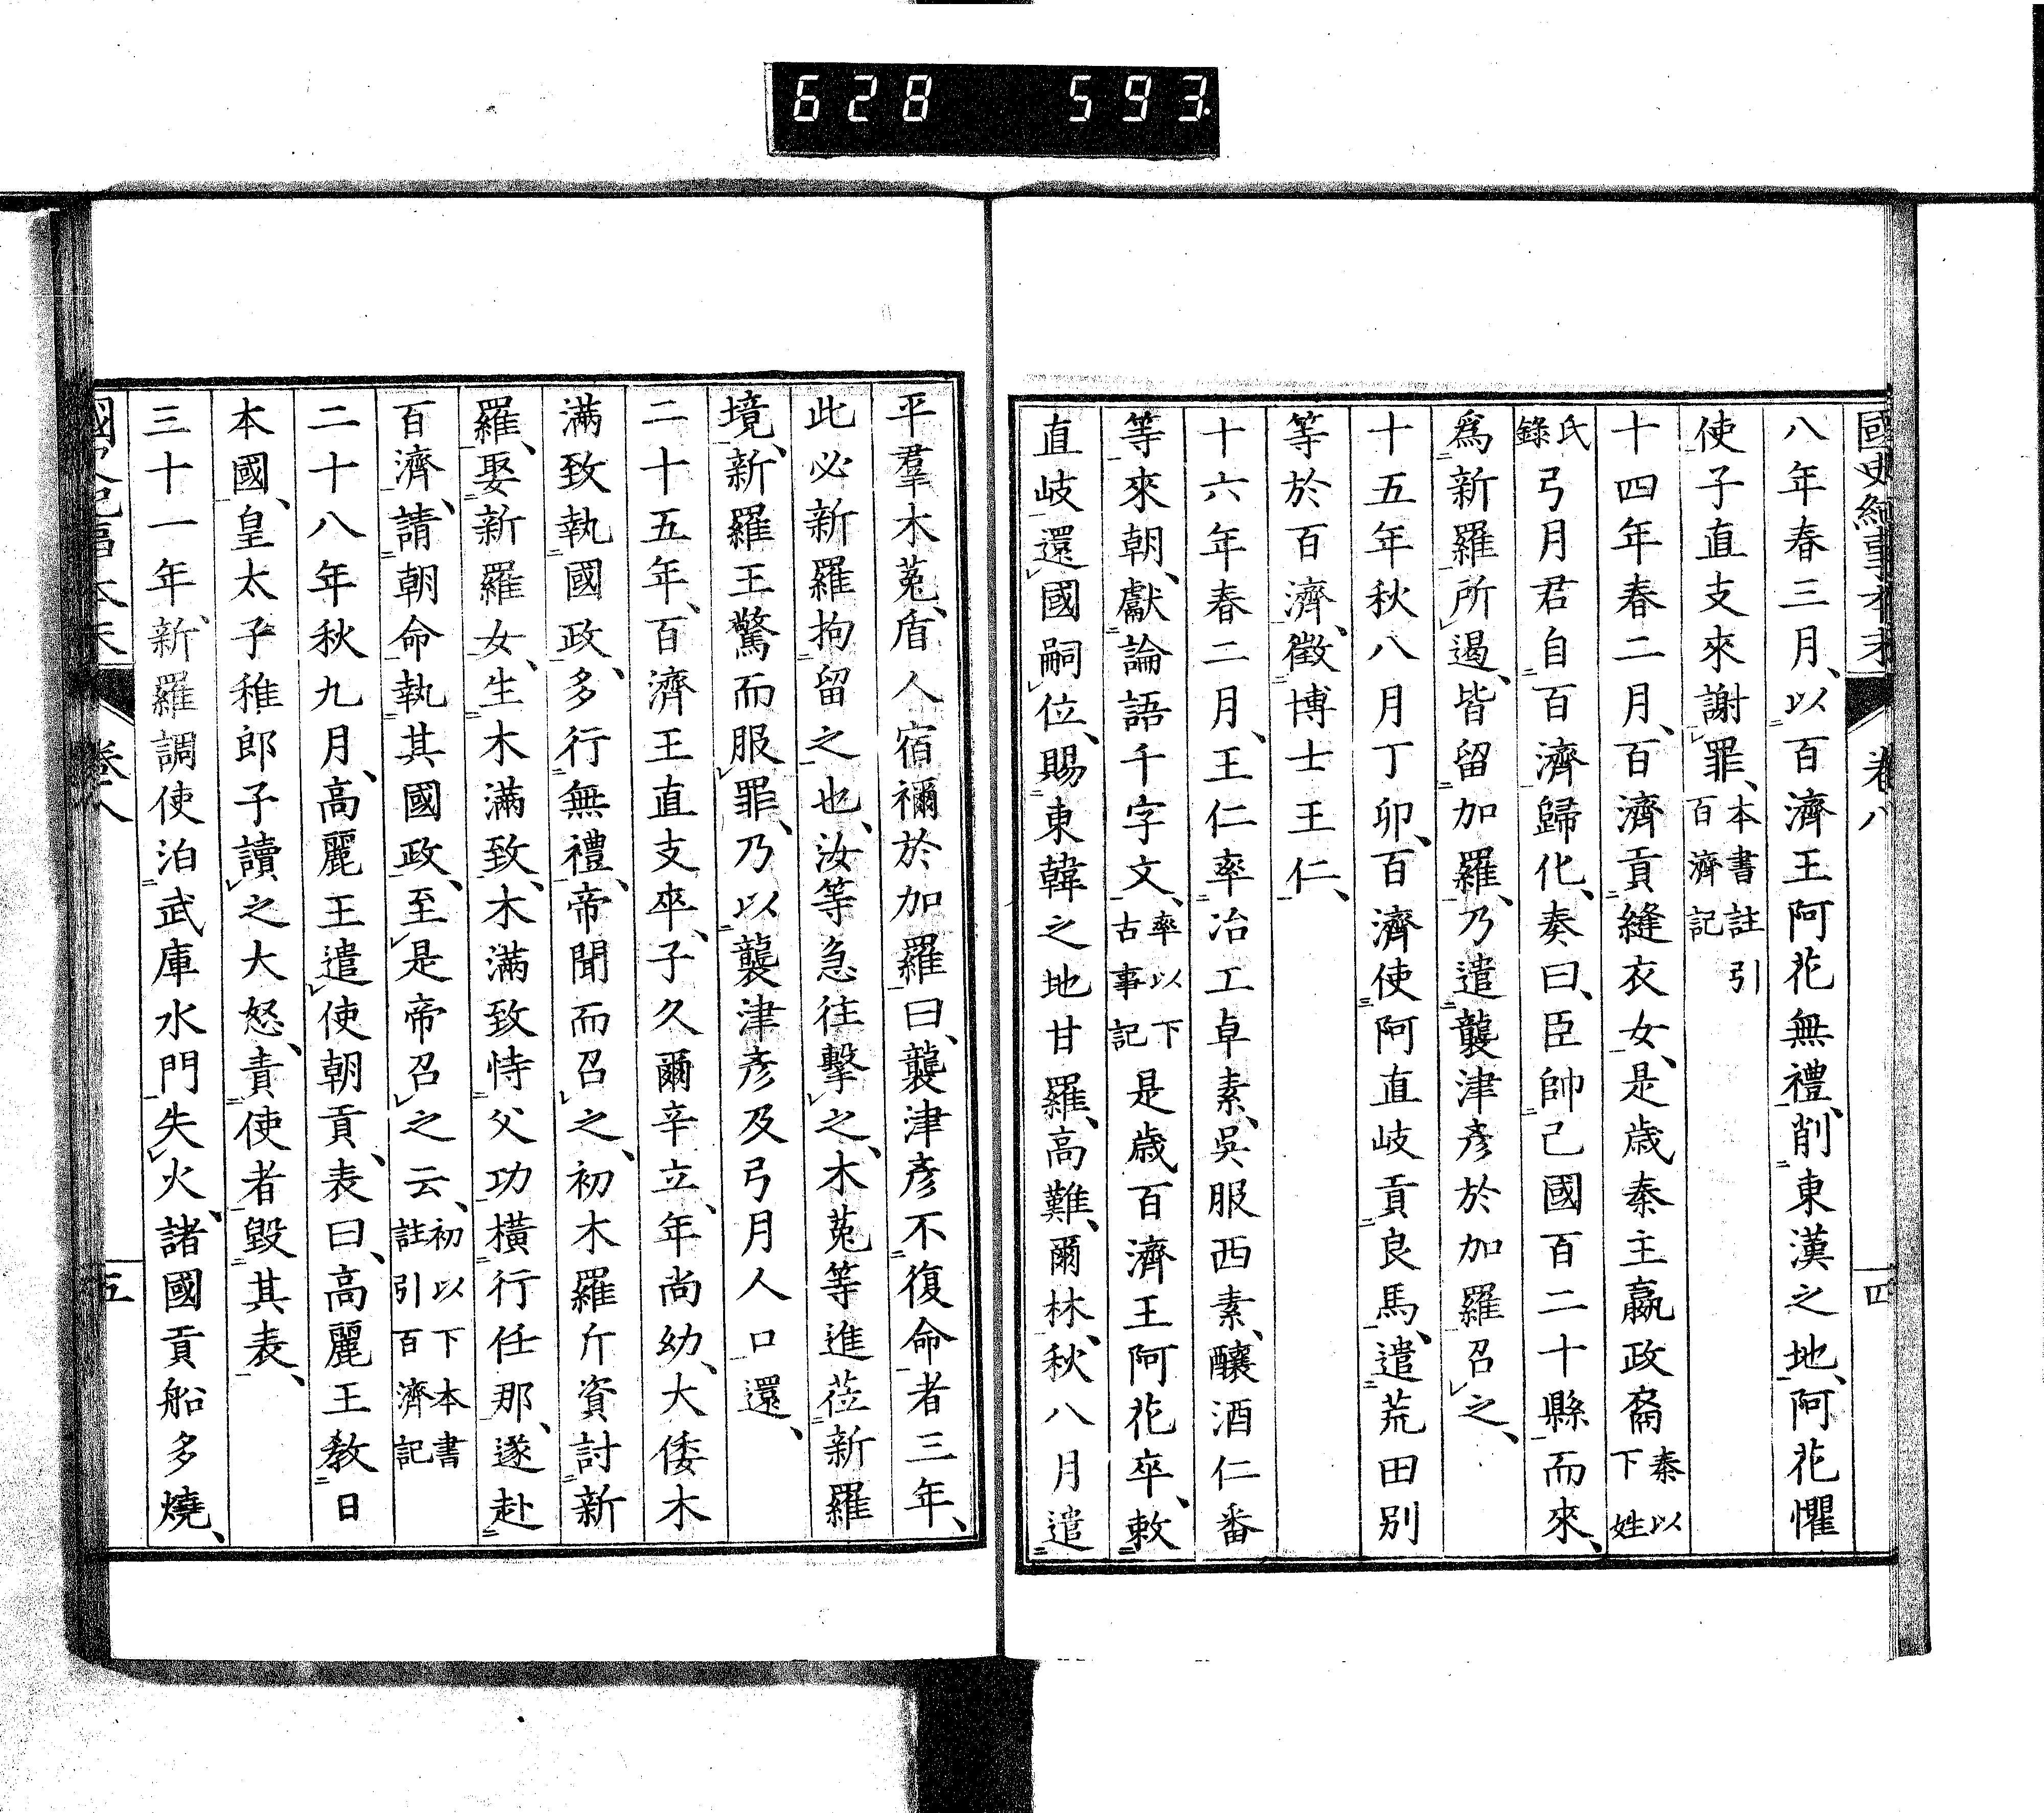 628 593.
國史紀事本末 卷八 四
八年春三月、以百濟王阿花無禮、削東漢之地、阿花懼
使子直支來謝罪、本書註引百濟記
十四年春二月、百濟貢縫衣女、是歲秦主嬴政裔秦以下姓
氏錄弓月君自百濟歸化、奏曰、臣帥己國百二十縣而來、
爲新羅所遏、皆留加羅、乃遣襲津彥於加羅召之、
十五年秋八月丁卯、百濟使阿直岐貢良馬、遣荒田別
等於百濟、徵博士王仁、
十六年春二月、王仁率冶工卓素、吳服西素、釀酒仁番
等來朝、獻論語千字文、率以下古事記是歲百濟王阿花卒、敕
直岐還國嗣位、賜東韓之地甘羅、高難、爾林、秋八月遣
平羣木菟、盾人宿禰於加羅曰、襲津彥不復命者三年、
此必新羅拘留之也、汝等急往擊之、木菟等進莅新羅
境、新羅王驚而服罪、乃以襲津彥及弓月人口還、
二十五年、百濟王直支卒、子久爾辛立、年尚幼、大倭木
滿致執國政、多行無禮、帝聞而召之、初木羅斤資討新
羅、娶新羅女、生木滿致、木滿致恃父功橫行任那、遂赴
百濟、請朝命執其國政、至是帝召之云、初以下本書註引百濟記
二十八年秋九月、高麗王遣使朝貢、表曰、高麗王敎日
本國、皇太子稚郎子讀之大怒、責使者毀其表、
三十一年、新羅調使泊武庫水門失火、諸國貢船多燒、
國史紀事本末 卷八 五